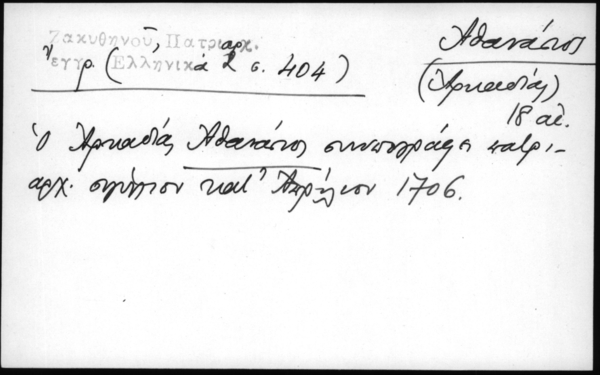 Ζακυθηνοῦ, Πατριαρχ.
ἔγγρ. (Ἑλληνικά 2 σ. 404)
Ἀθανάσιος
(Ἀρκαδίας)
18 αἰ.
Ὁ Ἀρκαδίας Ἀθανάσιος συνυπογράφει πατρι-
αρχ. σιγίλλιον κατ' Ἀπρίλιον 1706.